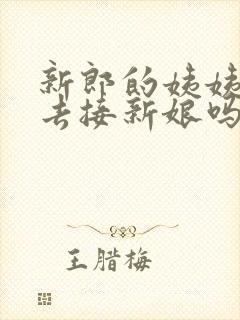 新郎的姨姨
去接新娘吗
王腊梅